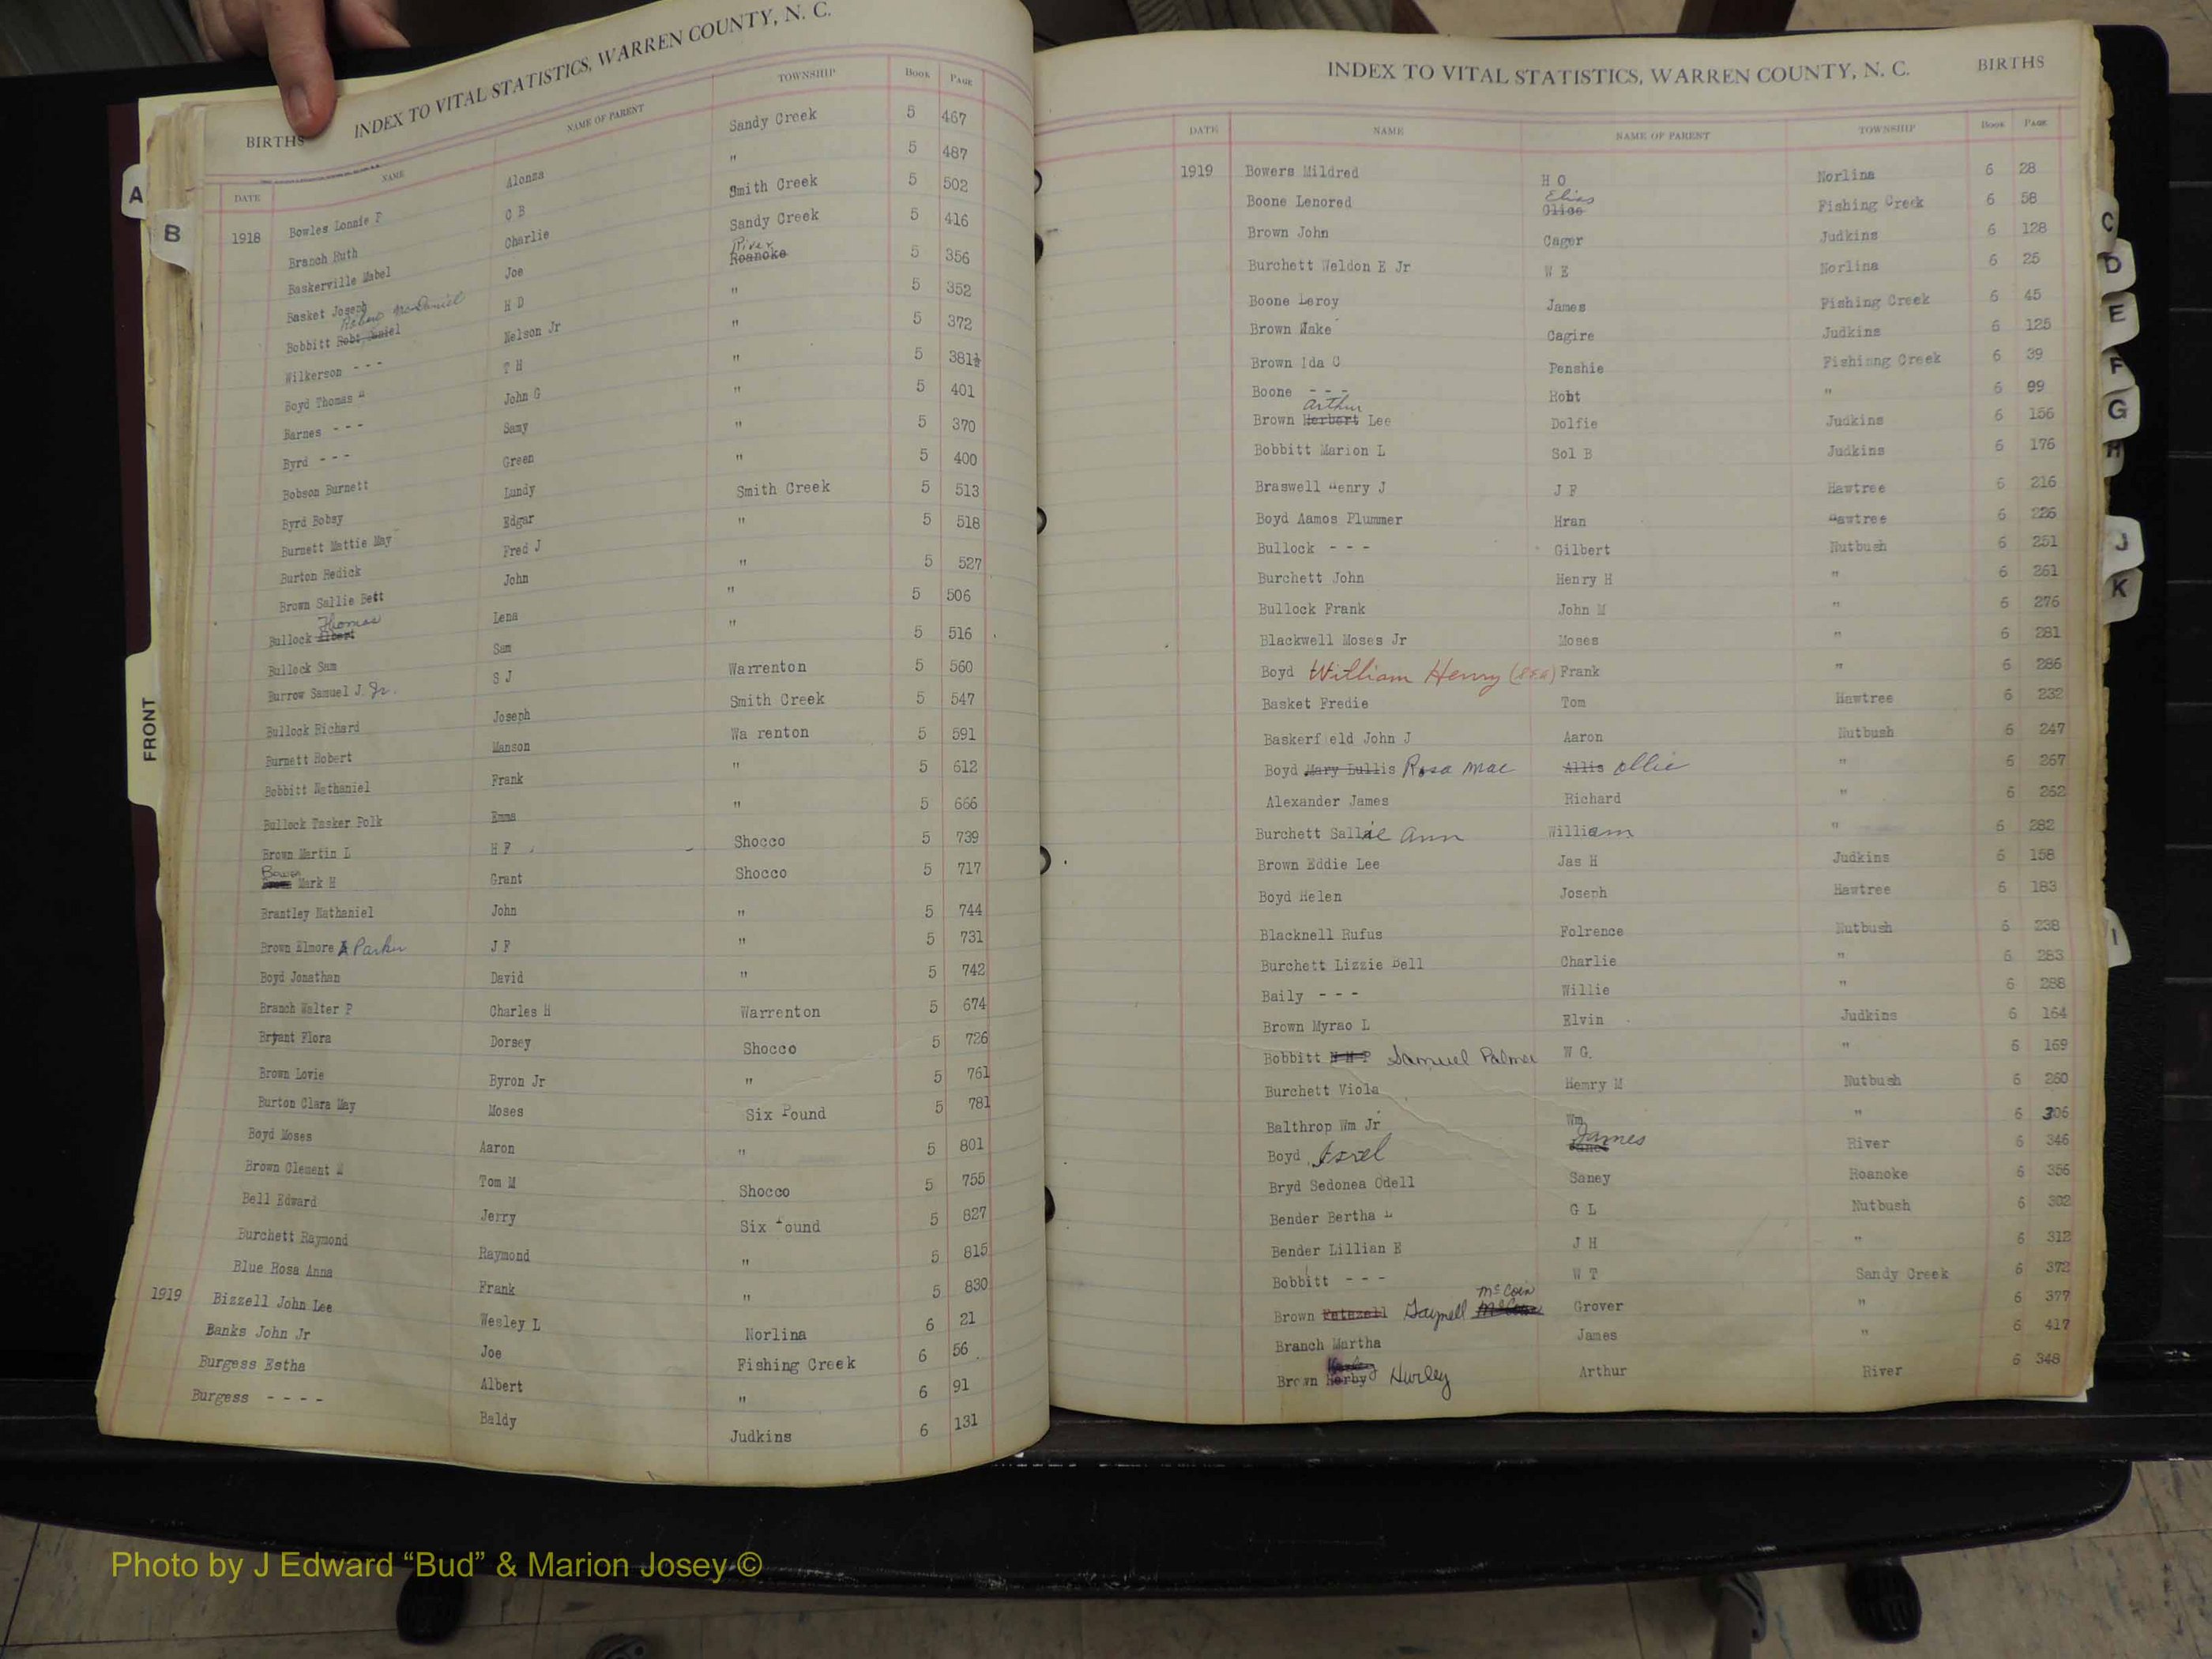 INDEX TO VITAL STATISTICS, WARREN COUNTY, N. C.
BIRTHS
DATE NAME NAME OF PARENT TOWNSHIP Book Page
1918 Bowles Lonnie P Alonza Sandy Creek 5 467
Branch Ruth C B " 5 487
Baskerville Mabel Charlie Smith Creek 5 502
Basket Joseph Joe Sandy Creek 5 416
McDaniel River
Bobbitt Robt Daniel H D Roanoke 5 356
Wilkerson - - - Nelson Jr " 5 352
Boyd Thomas H T H " 5 372
Barnes - - - John G " 5 381½
Byrd - - - Samy " 5 401
Bobson Burnett Green " 5 370
Byrd Bobsy Lundy " 5 400
Burnett Mattie May Edgar Smith Creek 5 513
Burton Hedick Fred J " 5 518
Brown Sallie Bett John " 5 527
Thomas
Bullock Albert Lena " 5 506
Bullock Sam Sam " 5 516
Burrow Samuel J. Jr. S J Warrenton 5 560
Bullock Richard Joseph Smith Creek 5 547
Burnett Robert Manson Wa renton 5 591
Bobbitt Nathaniel Frank " 5 612
Bullock Tasker Polk Emma " 5 666
Brown Martin L H F Shocco 5 739
Mark H Grant Shocco 5 717
Brantley Nathaniel John " 5 744
Brown Elmore A Parker J F " 5 731
Boyd Jonathan David " 5 742
Branch Walter P Charles H Warrenton 5 674
Bryant Flora Dorsey Shocco 5 726
Brown Lovie Byron Jr " 5 761
Burton Clara May Moses Six Pound 5 781
Boyd Moses Aaron " 5 801
Brown Clement M Tom M Shocco 5 755
Bell Edward Jerry Six Pound 5 827
Burchett Raymond Raymond " 5 815
Blue Rosa Anna Frank " 5 830
1919 Bizzell John Lee Wesley L Norlina 6 21
Banks John Jr Joe Fishing Creek 6 56
Burgess Estha Albert " 6 91
Burgess - - - - Baldy Judkins 6 131
A
B
FRONT
INDEX TO VITAL STATISTICS, WARREN COUNTY, N. C. BIRTHS
DATE NAME NAME OF PARENT TOWNSHIP Book Page
1919 Bowers Mildred H O Norlina 6 28
Elias
Boone Lenored Clise Fishing Creek 6 58
Brown John Cager Judkins 6 128
Burchett Weldon E Jr W E Norlina 6 25
Boone Leroy James Fishing Creek 6 45
Brown Wake Cagire Judkins 6 125
Brown Ida C Penshie Fishiang Creek 6 39
Boone - - - Robt " 6 99
Arthur
Brown Herbert Lee Dolfie Judkins 6 156
Bobbitt Marion L Sol B Judkins 6 176
Braswell Henry J J F Hawtree 6 216
Boyd Aamos Plummer Hran Hawtree 6 226
Bullock - - - Gilbert Nutbush 6 251
Burchett John Henry H " 6 261
Bullock Frank John M " 6 276
Blackwell Moses Jr Moses " 6 281
Boyd William Henry Frank " 6 286
Basket Fredie Tom Hawtree 6 232
Baskerf eld John J Aaron Nutbush 6 247
Boyd Mary Lullis Rosa Mae Allis Ollie " 6 267
Alexander James Richard " 6 262
Burchett Sallie Ann William " 6 282
Brown Eddie Lee Jas H Judkins 6 158
Boyd Helen Joseph Hawtree 6 183
Blacknell Rufus Folrence Nutbush 6 238
Burchett Lizzie Bell Charlie " 6 283
Baily - - - Willie " 6 288
Brown Myrao L Elvin Judkins 6 164
Bobbitt Samuel Palmer W G. " 6 169
Burchett Viola Henry M Nutbush 6 260
Balthrop Wm Jr Wm " 6 306
James
Boyd River 6 346
Bryd Sedonea Odell Saney Roanoke 6 356
Bender Bertha L G L Nutbush 6 302
Bender Lillian E J H " 6 312
Bobbitt - - - W T Sandy Creek 6 372
McCoin
Brown Gaynell Grover " 6 377
Branch Martha James " 6 417
Brown Herby Hurley Arthur River 6 348
C
D
E
F
G
H
J
K
I
Photo by J Edward “Bud” & Marion Josey ©